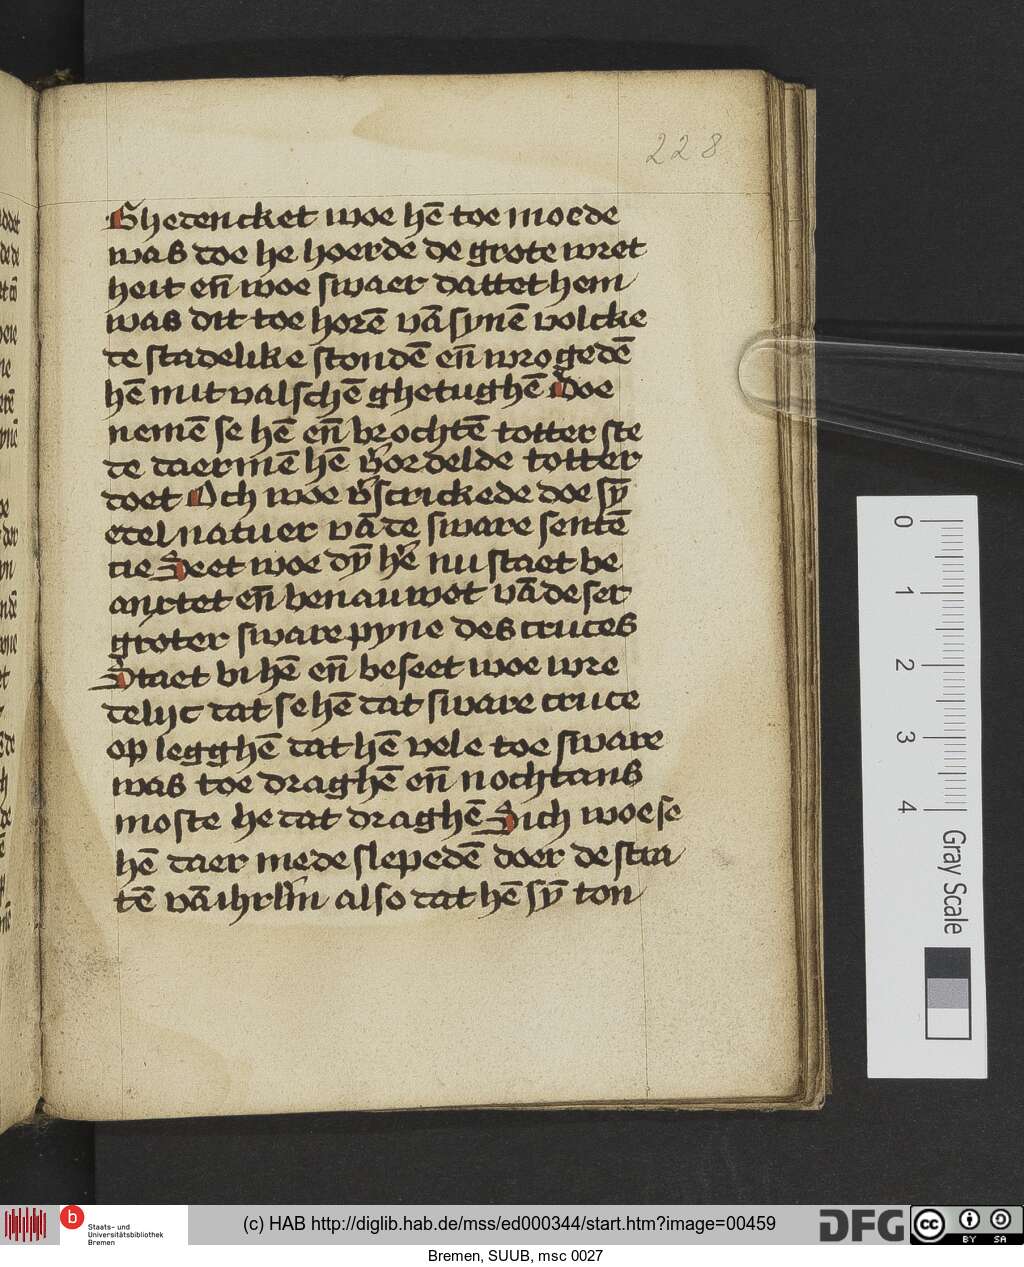 228
Ghedencket woe hē toe moede
was doe he hoerde de grote wret
heit en̄ woe swaer dattet hem
was dit toe horē vā synē volcke
de stadelike stondē en̄ wrogedē
hē mit valschē ghetughē Doe
nemē se hē en̄ brochtē totter ste
de daermē hē v̄ordelde totter
doet Och woe v̄scrickede doe sȳ
edel natuer vā de sware sentē
cie Seet woe dȳ hē nu staet be
anxtet en̄ benauwet vā deser
groter sware pyne des cruces
Staet bi hē en̄ beseet woe wre
delijc dat se hē dat sware cruce
op legghē dat hē vele toe sware
was toe draghē en̄ nochtans
moste he dat draghē Sich woe se
hē daer mede slepedē doer de stra
tē vā ihrlm̄ also dat hē sȳ ton
0
1
2
3
4
Gray Scale
b
Staats- und
Universitätsbibliothek
Bremen
(c) HAB http://diglib.hab.de/mss/ed000344/start.htm?image=00459
DFG
cc
BY SA
Bremen, SUUB, msc 0027